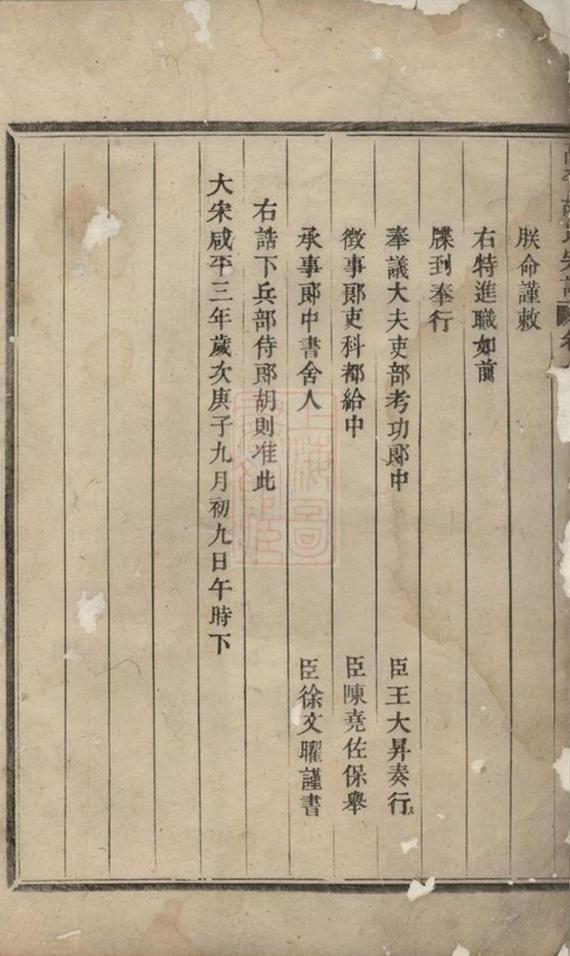 朕命謹敕
右特進職如前
牒到奉行
奉議大夫吏部考功郎中 臣王大昇奏行
徴事郎吏科都給中 臣陳堯佐保舉
承事郎中書舍人 臣徐文曜謹書
右誥下兵部侍郎胡則准此
大宋咸平三年歲次庚子九月初九日午時下
上海圖